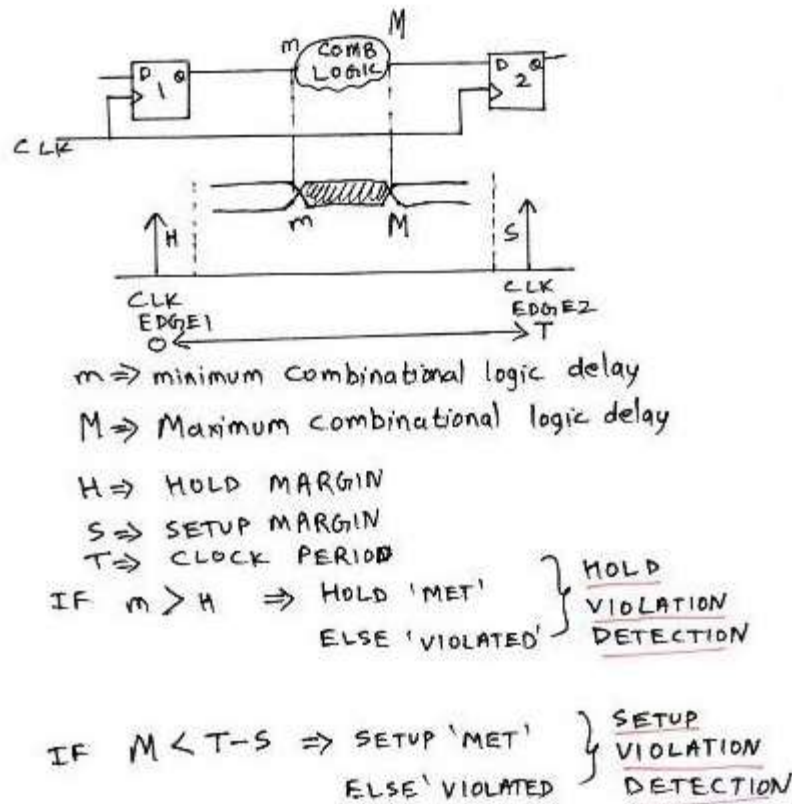 m
M
COMB
LOGIC
D Q
1
D Q
2
CLK
m
M
H
S
CLK
EDGE1
CLK
EDGE2
O
T
m => minimum combinational logic delay
M => Maximum combinational logic delay
H => HOLD MARGIN
S => SETUP MARGIN
T => CLOCK PERIOD
IF m > H => HOLD 'MET' } HOLD
ELSE 'VIOLATED' VIOLATION
DETECTION
IF M < T-S => SETUP 'MET' } SETUP
VIOLATION
ELSE 'VIOLATED DETECTION